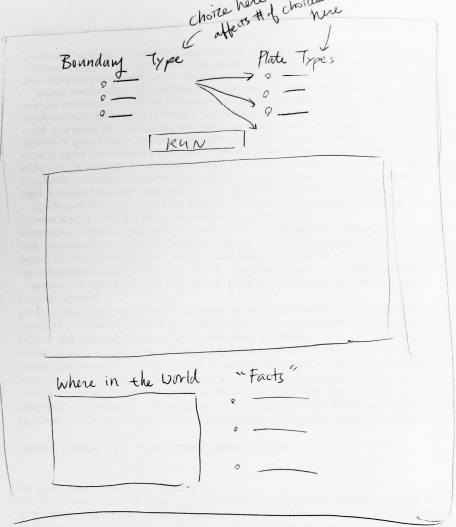 choice here
affects # of choices
here
Boundary Type
Plate Types
RUN
Where in the World
"Facts"